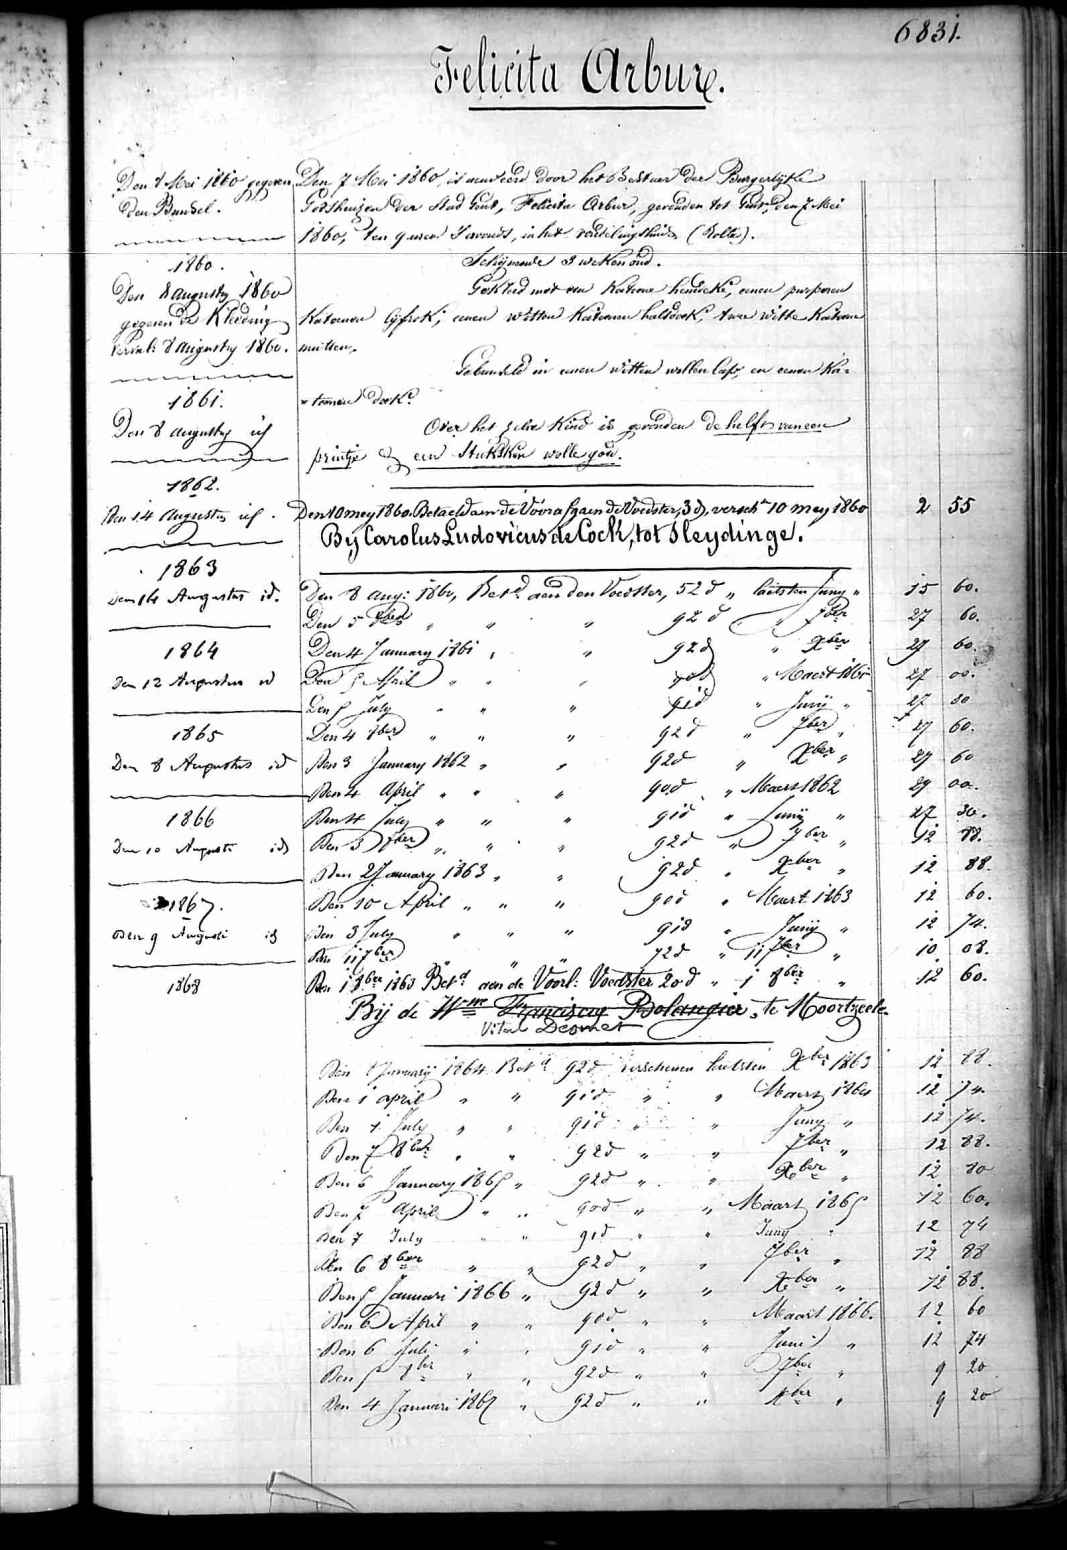 6831.
Felicita Arbure.
Den 7 Mei 1860 gegeven
den Bundel.
1860.
Den 8 augusty 1860
gegeven de Kleding
8 augusty 1860.
1861.
Den 8 augusty id
1862.
Den 14 Augustus id.
1863
Den 14 Augustus id.
1864
Den 12 Augustus id
1865
Den 8 Augustus id
1866
Den 10 Augusti id
1867.
Den 9 Augusti id
1868
Den 7 Mei 1860, is door het Bestuur der Burgerlijke
Godshuizen der Stad Gent, Felicita Arbur, gevonden tot Gent, den 7 Mei
1860, ten 9 uren s'avonds, in het (Rolle).
Schijnende 3 weken oud.
Gekleed met een Katoene eenen purperen
Katoenen eenen witten Katoenen halsdoek, twee witte Katoene
mutsen.
Gebundeld in eenen witten wollen en eenen ka=
=toenen doek.
Over het zelve Kind is gevonden de helft van een
printje en een Stuksken wolle
Den 10 mey 1860. Betaeld aen de Voedster, 3 d, versch. 10 mey 1860 2 55
Bij Carolus Ludovicus de Cock, tot Sleydinge.
Den 8 aug: 1860, Bet.d aen den Voedster, 52 d „ laetsten Juny „ 15 60.
Den 5 8ber „ „ „ 92 d „ 7ber 27 60.
Den 4 January 1861 „ „ 92 d „ Xber 27 60.
Den 5 April „ „ „ 90 d „ Maert 1861 27 00.
Den 5 July „ „ „ 91 d „ Junij „ 27 30
Den 4 8ber „ „ „ 92 d „ 7ber „ 27 60.
Den 3 January 1862 „ „ 92 d „ Xber „ 27 60
Den 4 April „ „ „ 90 d „ Maert 1862 27 00.
Den 4 July „ „ „ 91 d „ Junij „ 27 30.
Den 3 8ber „ „ „ 92 d „ 7ber „ 12 88.
Den 2 January 1863 „ „ 92 d „ Xber „ 12 88.
Den 10 April „ „ „ 90 d „ Maert 1863 12 60.
Den 3 July „ „ „ 91 d „ Junij „ 12 74.
Den 11 7ber „ „ „ 72 d „ 11 7ber „ 10 08.
Den 1 8ber 1863 Bet.d aen de Voorl: Voedster 20 d „ 1 8ber „ 12 60.
Bij de Wwe Franciscus Bolangier, te Moortzeele.
Vital Desmet
Den 1 January 1864 Bet.d 92 d verschenen laetsten Xber 1863 12 88.
Den 1 april „ „ 91 d „ „ Maert 1864 12 74.
Den 1 July „ „ 91 d „ „ Juny „ 12 74.
Den 7 8ber „ „ 92 d „ „ 7ber „ 12 88.
Den 6 January 1865 „ 92 d „ „ Xber „ 12 80
Den 7 April „ „ 90 d „ „ Maart 1865 12 60.
Den 7 July „ „ 91 d „ „ Juny „ 12 74
Den 6 8ber „ „ 92 d „ „ 7ber „ 12 88
Den 5 Januari 1866 „ 92 d „ „ Xber „ 12 88.
Den 6 April „ „ 90 d „ „ Maart 1866. 12 60
Den 6 Juli „ „ 91 d „ „ Juni „ 12 74
Den 5 8br „ „ 92 d „ „ 7ber „ 9 20
Den 4 Januari 1867 „ 92 d „ „ Xber „ 9 20